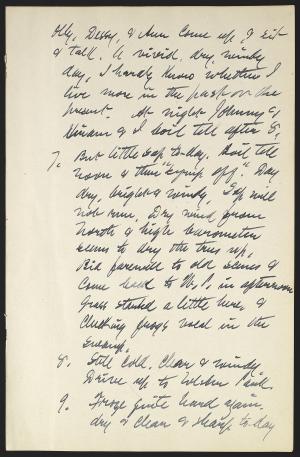 Olly, Dessy, & Ann come up, I sit
& talk. A vivid, dry, windy
day, I hardly know whether I
live more in the past or the
present. At night Johnny &
Hiram & I boil till after 8,
7. But little sap to-day. Boil till
noon & then "syrup off." Day
dry, bright & windy, Sap will
not run. Dry wind from
north & high barometer
seems to dry the trees up,
Bid farewell to old scenes &
come back to W.P. in afternoon
Grass started a little here, &
clucking frogs loud in the
swamp.
8. Still cold. Clear & windy
Drive up to
9. Froze quite hard again.
dry & clear & sharp to-day